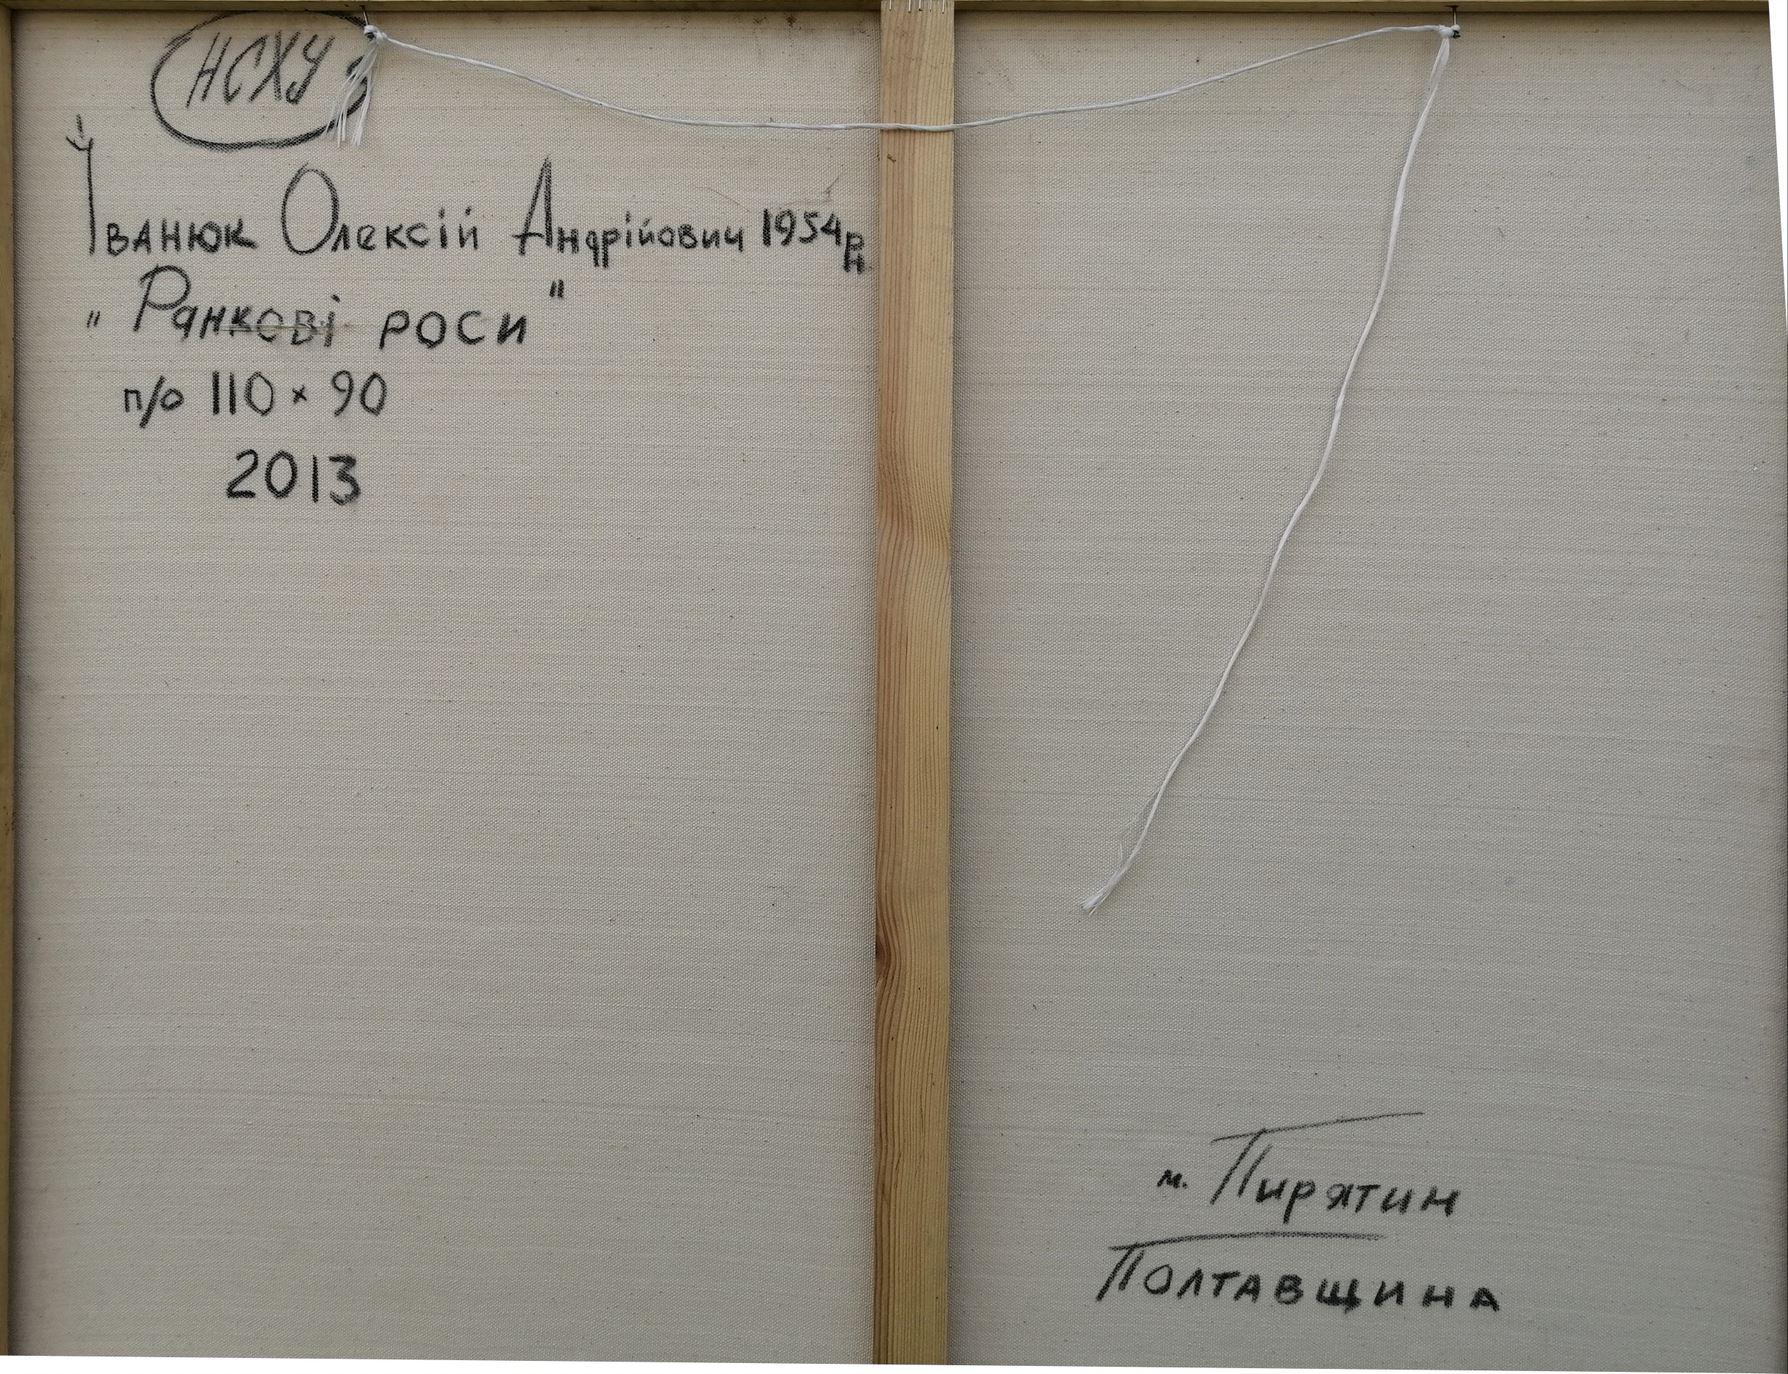 НСХУ
Іванюк Олексій Андрійович 1954 рн
„ Ранкові роси "
п/о 110 × 90
2013
м. Пирятин
Полтавщина